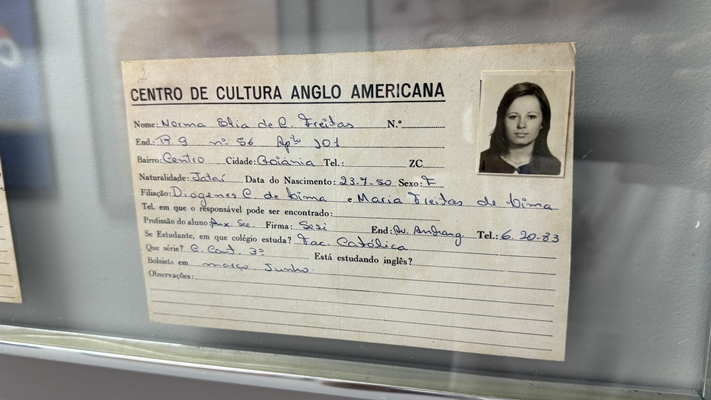 CENTRO DE CULTURA ANGLO AMERICANA
Nome: Norma Elia de C. Freitas N.º
End.: R. 9 nº 56 Aptº 101
Bairro: Centro Cidade: Goiânia Tel.: ZC
Naturalidade: Jataí Data do Nascimento: 23.7.50 Sexo: F
Filiação: Diógenes C. de Lima e Maria Freitas de Lima
Tel. em que o responsável pode ser encontrado:
Profissão do aluno Aux. Sec. Firma: Sesi End: Av. Anhang. Tel.: 6.20-83
Se Estudante, em que colégio estuda? Fac. Católica
Que série? C. Cont. 3º Está estudando inglês?
Bolsista em março Junho.
Observações: